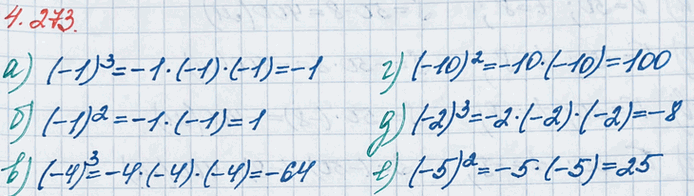 4.273.
а) (-1)³=-1·(-1)·(-1)=-1
б) (-1)²=-1·(-1)=1
в) (-4)³=-4·(-4)·(-4)=-64
г) (-10)²=-10·(-10)=100
д) (-2)³=-2·(-2)·(-2)=-8
е) (-5)²=-5·(-5)=25